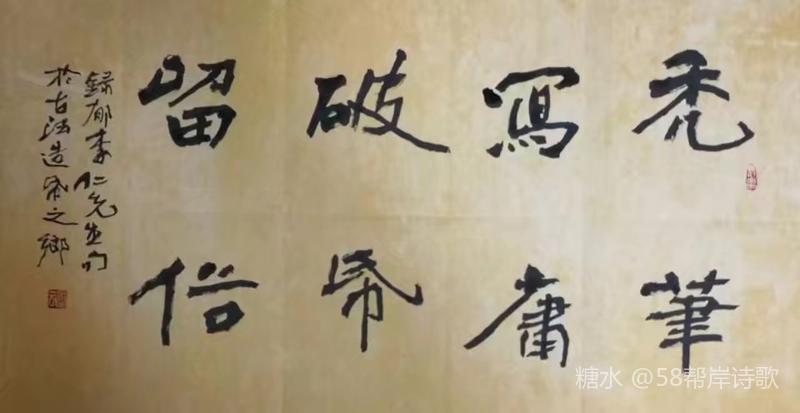 秃筆
寫庸
破帋
留俗
錄郁李仁先生句
於古法造帋之鄉
糖水 @58帮岸诗歌